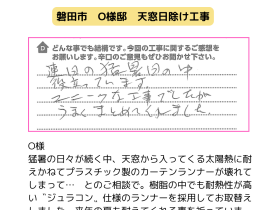 磐田市 O様邸 天窓日除け工事
どんな事でも結構です。今回の工事に関するご感想を
お願いします。辛口のご意見もぜひお聞かせ下さい。
連日の猛暑日の中
役立っています
ユニークな工事でしたが
うまくまとめてくれました
O様
猛暑の日々が続く中、天窓から入ってくる太陽熱に耐
えかねてプラスチック製のカーテンランナーが壊れて
しまって… とのご相談で。樹脂の中でも耐熱性が高
い「ジュラコン」仕様のランナーを採用してお取替え
しました。来年の夏も耐えてくれる事を祈っていま